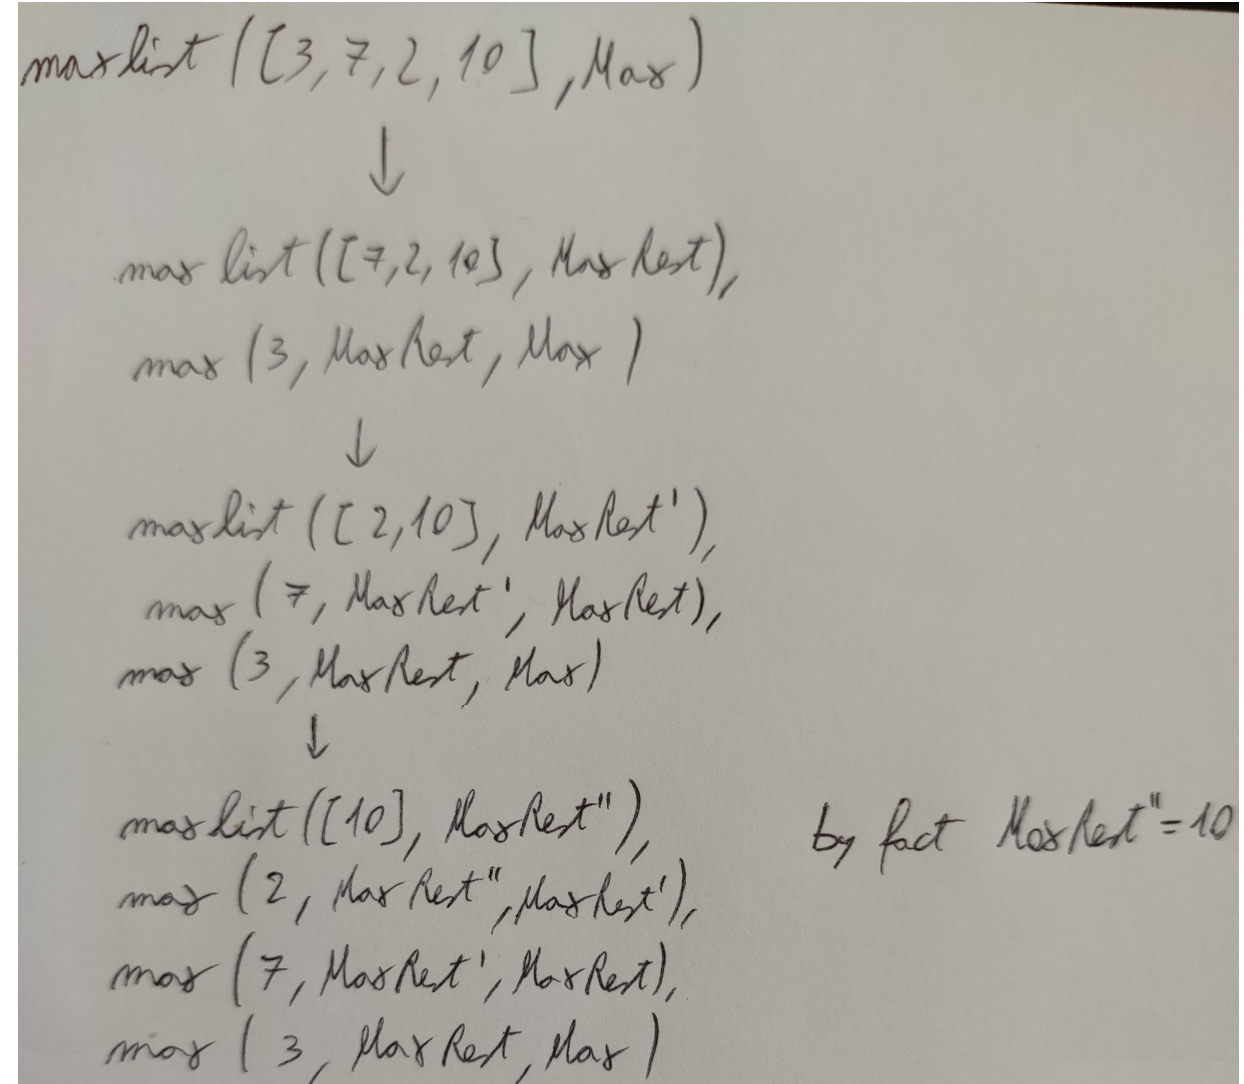 maxlist([3,7,2,10],Max)
↓
maxlist([7,2,10], MaxRest),
max(3, MaxRest, Max)
↓
maxlist([2,10], MaxRest'),
max(7, MaxRest', MaxRest),
max(3, MaxRest, Max)
↓
maxlist([10], MaxRest''), by fact MaxRest''=10
max(2, MaxRest'', MaxRest'),
max(7, MaxRest', MaxRest),
max(3, MaxRest, Max)